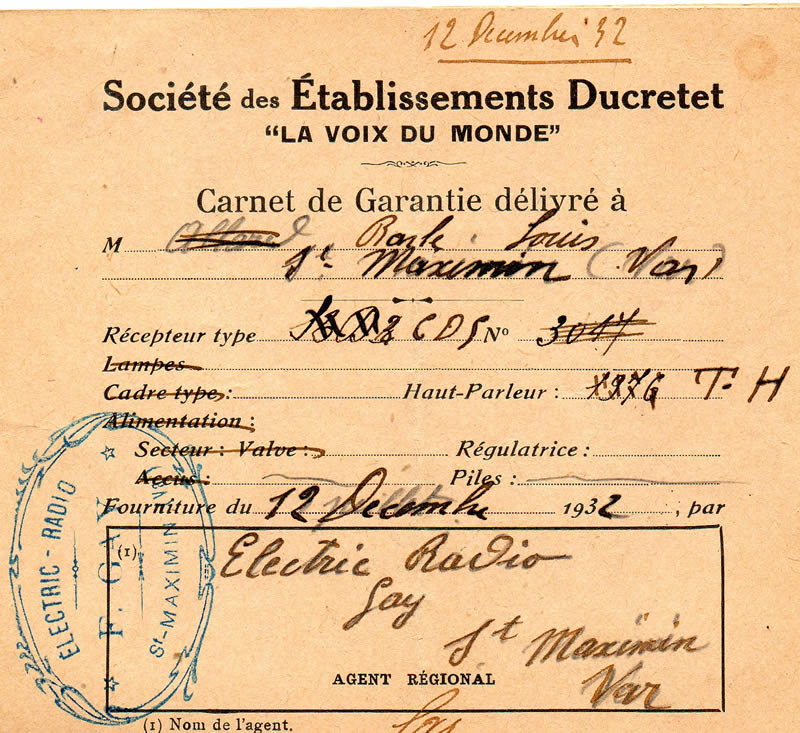 12 Decembre 32
Société des Établissements Ducretet
"LA VOIX DU MONDE"
Carnet de Garantie délivré à
M Louis
St. Maximin (Var)
Récepteur type CDS No 3017
Lampes
Cadre type : Haut-Parleur : 1976 T-H
Alimentation :
Secteur : Valve : Régulatrice :
Accus : Piles :
Fourniture du 12 Decembre 1932, par
(1) Electric Radio
Gay
St Maximin
AGENT RÉGIONAL Var
(1) Nom de l'agent. Gay
ELECTRIC - RADIO
F. GAY
St-MAXIMIN (VAR)